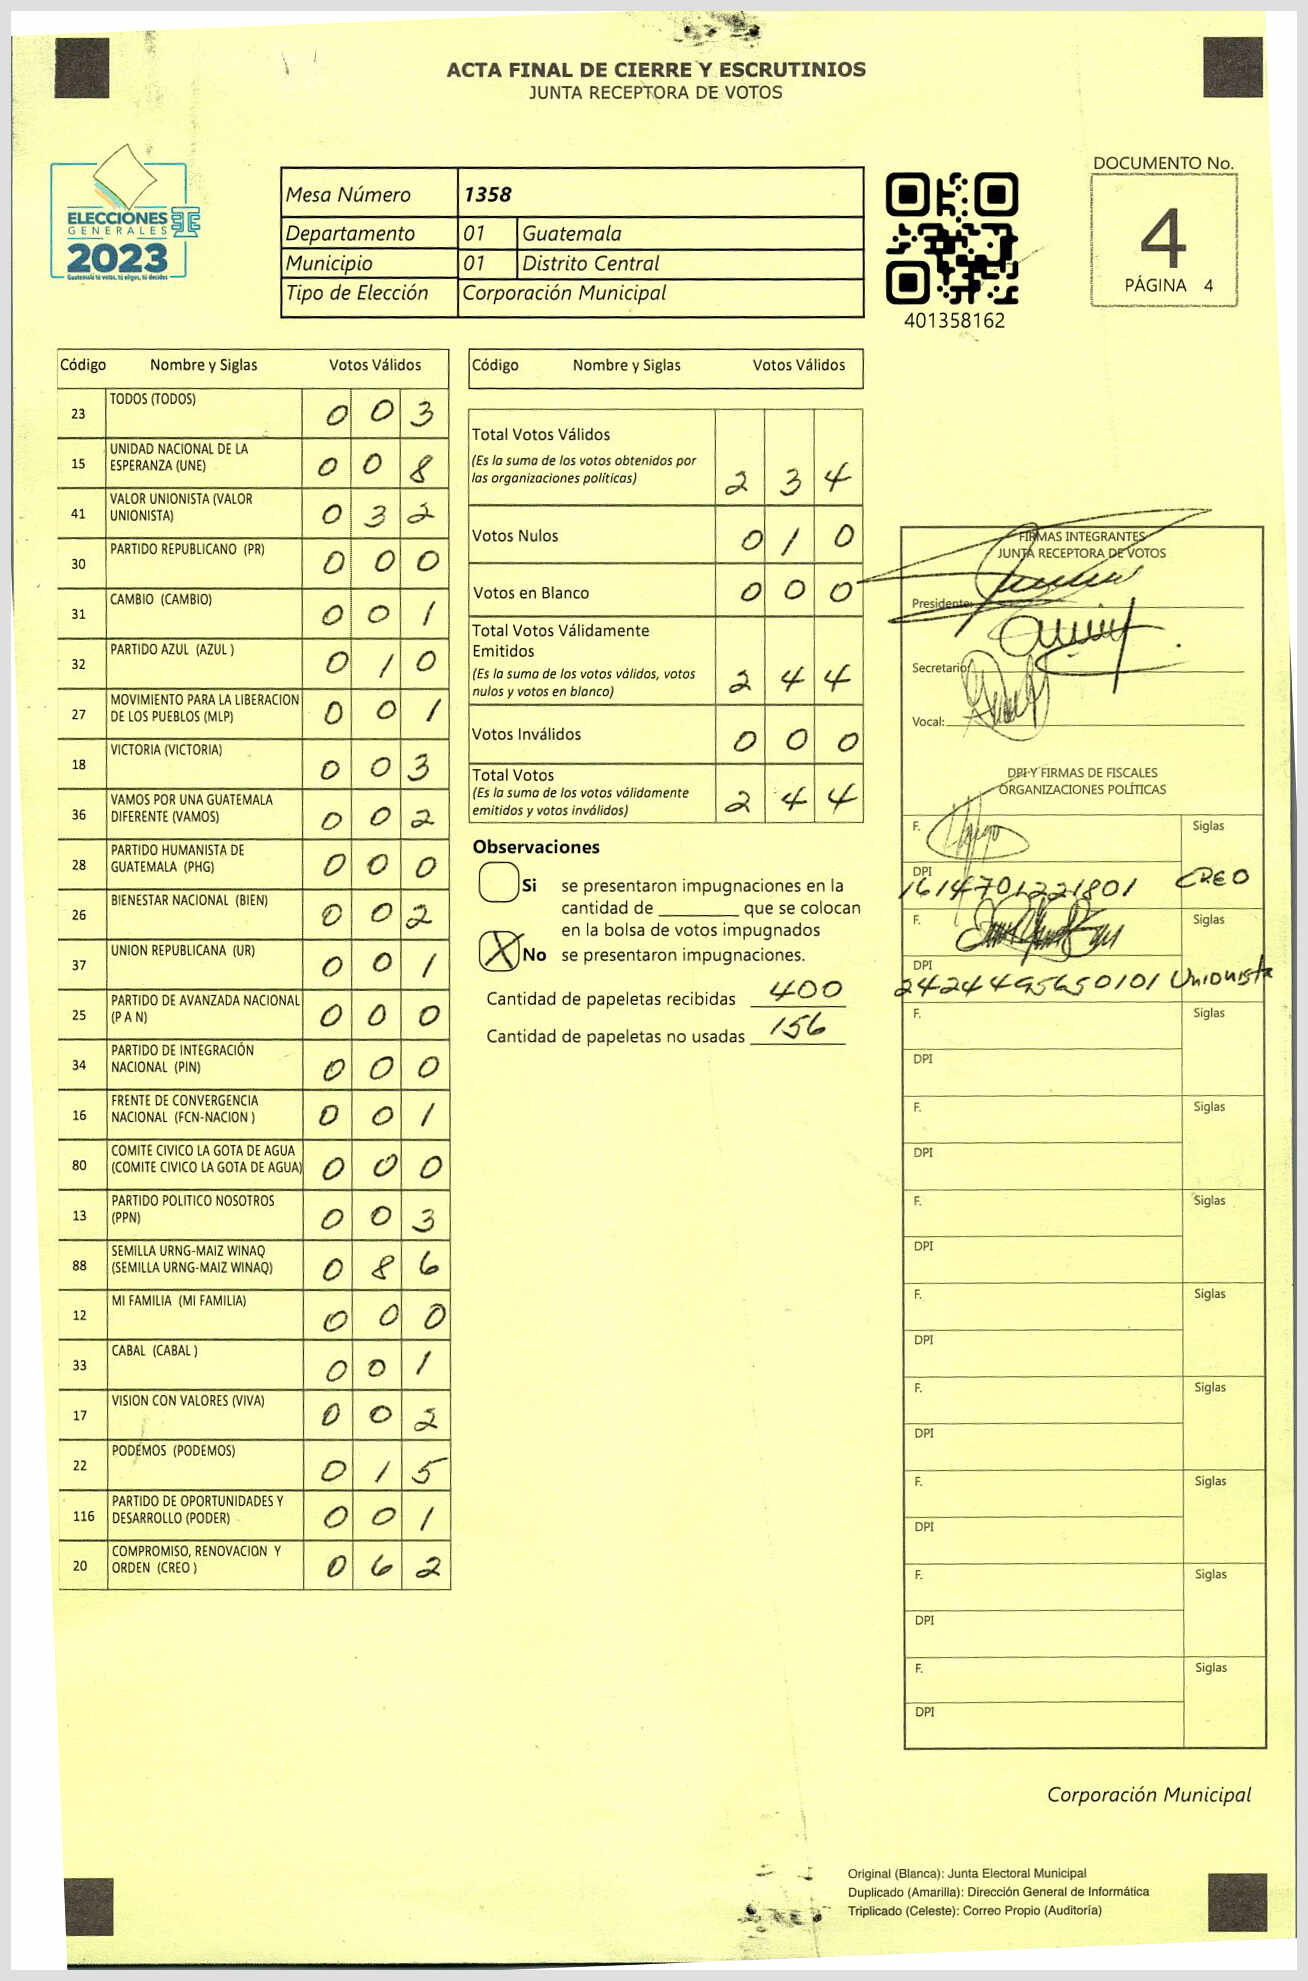 ACTA FINAL DE CIERRE Y ESCRUTINIOS
JUNTA RECEPTORA DE VOTOS
ELECCIONES
GENERALES
2023
Guatemala tú votas, tú eliges, tú decides
Mesa Número 1358
Departamento 01 Guatemala
Municipio 01 Distrito Central
Tipo de Elección Corporación Municipal
401358162
DOCUMENTO No.
4
PÁGINA 4
Código Nombre y Siglas Votos Válidos
23 TODOS (TODOS) 0 0 3
15 UNIDAD NACIONAL DE LA
ESPERANZA (UNE) 0 0 8
41 VALOR UNIONISTA (VALOR
UNIONISTA) 0 3 2
30 PARTIDO REPUBLICANO (PR) 0 0 0
31 CAMBIO (CAMBIO) 0 0 1
32 PARTIDO AZUL (AZUL ) 0 1 0
27 MOVIMIENTO PARA LA LIBERACION
DE LOS PUEBLOS (MLP) 0 0 1
18 VICTORIA (VICTORIA) 0 0 3
36 VAMOS POR UNA GUATEMALA
DIFERENTE (VAMOS) 0 0 2
28 PARTIDO HUMANISTA DE
GUATEMALA (PHG) 0 0 0
26 BIENESTAR NACIONAL (BIEN) 0 0 2
37 UNION REPUBLICANA (UR) 0 0 1
25 PARTIDO DE AVANZADA NACIONAL
(P A N) 0 0 0
34 PARTIDO DE INTEGRACIÓN
NACIONAL (PIN) 0 0 0
16 FRENTE DE CONVERGENCIA
NACIONAL (FCN-NACION ) 0 0 1
80 COMITE CIVICO LA GOTA DE AGUA
(COMITE CIVICO LA GOTA DE AGUA) 0 0 0
13 PARTIDO POLITICO NOSOTROS
(PPN) 0 0 3
88 SEMILLA URNG-MAIZ WINAQ
(SEMILLA URNG-MAIZ WINAQ) 0 8 6
12 MI FAMILIA (MI FAMILIA) 0 0 0
33 CABAL (CABAL ) 0 0 1
17 VISION CON VALORES (VIVA) 0 0 2
22 PODEMOS (PODEMOS) 0 1 5
116 PARTIDO DE OPORTUNIDADES Y
DESARROLLO (PODER) 0 0 1
20 COMPROMISO, RENOVACION Y
ORDEN (CREO ) 0 6 2
Código Nombre y Siglas Votos Válidos
Total Votos Válidos
(Es la suma de los votos obtenidos por
las organizaciones políticas) 2 3 4
Votos Nulos 0 1 0
Votos en Blanco 0 0 0
Total Votos Válidamente
Emitidos
(Es la suma de los votos válidos, votos
nulos y votos en blanco) 2 4 4
Votos Inválidos 0 0 0
Total Votos
(Es la suma de los votos válidamente
emitidos y votos inválidos) 2 4 4
Observaciones
Si se presentaron impugnaciones en la
cantidad de ________ que se colocan
en la bolsa de votos impugnados
X No se presentaron impugnaciones.
Cantidad de papeletas recibidas 400
Cantidad de papeletas no usadas 156
FIRMAS INTEGRANTES
JUNTA RECEPTORA DE VOTOS
Presidente:
Secretario:
Vocal:
DPI Y FIRMAS DE FISCALES
ORGANIZACIONES POLÍTICAS
F. Siglas
DPI
1614701221801 CREO
F. Siglas
DPI
2424495650101 Unionista
F. Siglas
DPI
F. Siglas
DPI
F. Siglas
DPI
F. Siglas
DPI
F. Siglas
DPI
F. Siglas
DPI
F. Siglas
DPI
F. Siglas
DPI
Corporación Municipal
Original (Blanca): Junta Electoral Municipal
Duplicado (Amarilla): Dirección General de Informática
Triplicado (Celeste): Correo Propio (Auditoría)